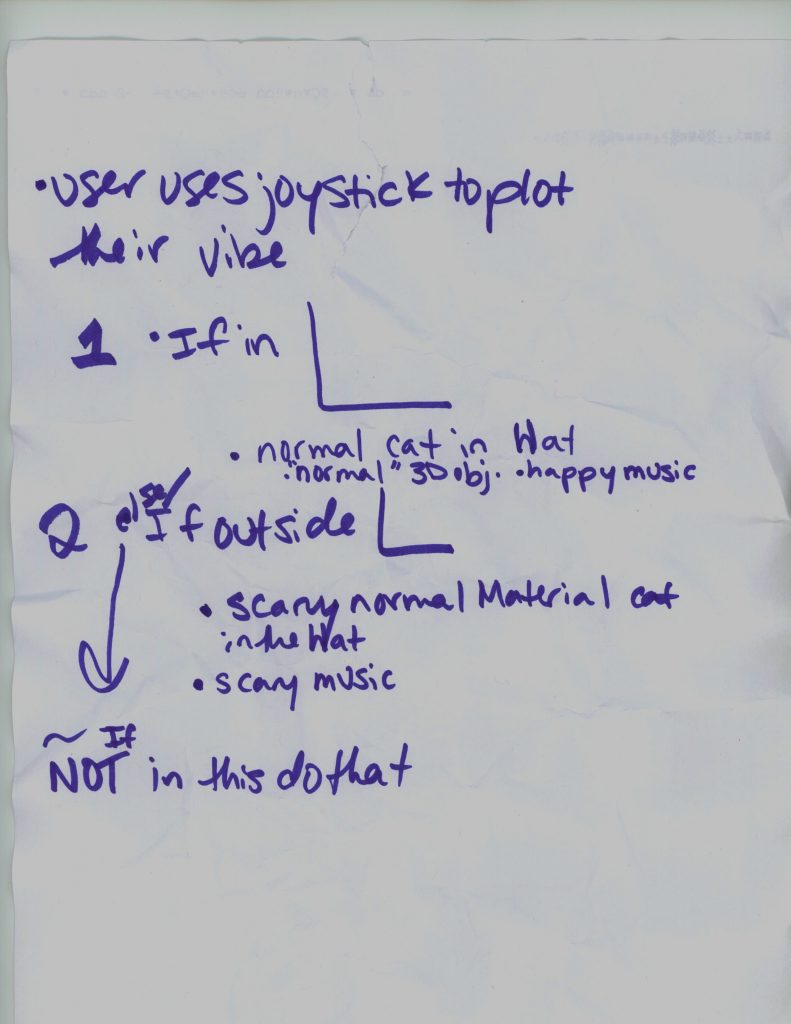 • user uses joystick to plot
their vibe
1 • If in
• normal cat in Hat
• "normal" 3D obj. • happy music
2 else/ If outside
• scary normal Material cat
in the Hat
• scary music
~ If
NOT in this do that